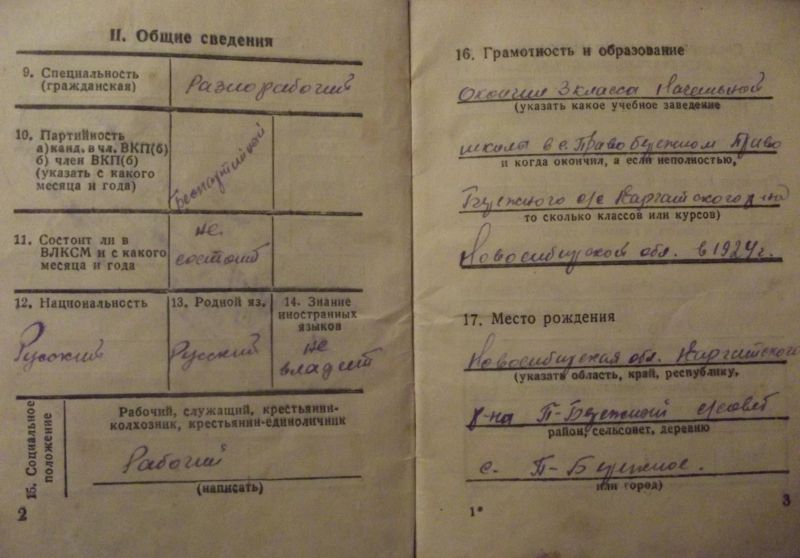 II. Общие сведения
9. Специальность
(гражданская)
Разнорабочий
10. Партийность
а) канд. в чл. ВКП(б)
б) член ВКП(б)
(указать с какого
месяца и года)
беспартийной
11. Состоит ли в
ВЛКСМ и с какого
месяца и года
не
состоит
12. Национальность
Русский
13. Родной яз.
Русский
14. Знание
иностранных
языков
не
владеет
15. Социальное
положение
Рабочий, служащий, крестьянин-
колхозник, крестьянин-единоличник
Рабочий
(написать)
2
16. Грамотность и образование
окончил 3 класса Начальной
(указать какое учебное заведение
школы в с. Правобережном Право
и когда окончил, а если неполностью,
Бережного с/с Каргатского р-на
то сколько классов или курсов)
Новосибирской обл. в 1924 г.
17. Место рождения
Новосибирская обл. Каргатского
(указать область, край, республику,
р-на П-Бережной с/совет
район, сельсовет, деревню
с. П-Бережное.
или город)
1*
3